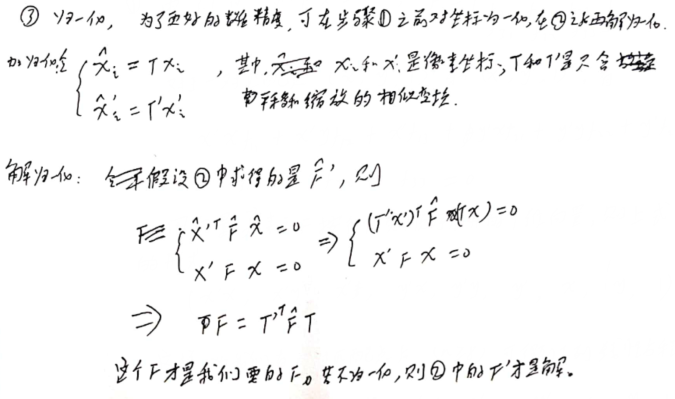 ③ 归一化, 为了更好的数值精度, 可在步骤①之前对坐标归一化, 在②之后再解归一化.
加归一化 { x̂ᵢ = T xᵢ , 其中, xᵢ 和 x'ᵢ 是像素坐标, T 和 T' 是只含
x̂'ᵢ = T' x'ᵢ 平移和缩放的相似变换.
解归一化: 假设②中求得的是 F̂', 则
{ x̂'ᵀ F̂ x̂ = 0 ⇒ { (T'x')ᵀ F̂ (Tx) = 0
x' F x = 0 x' F x = 0
⇒ F = T'ᵀ F̂ T
这个F才是我们要的F。若不归一化, 则②中的F'才是解。